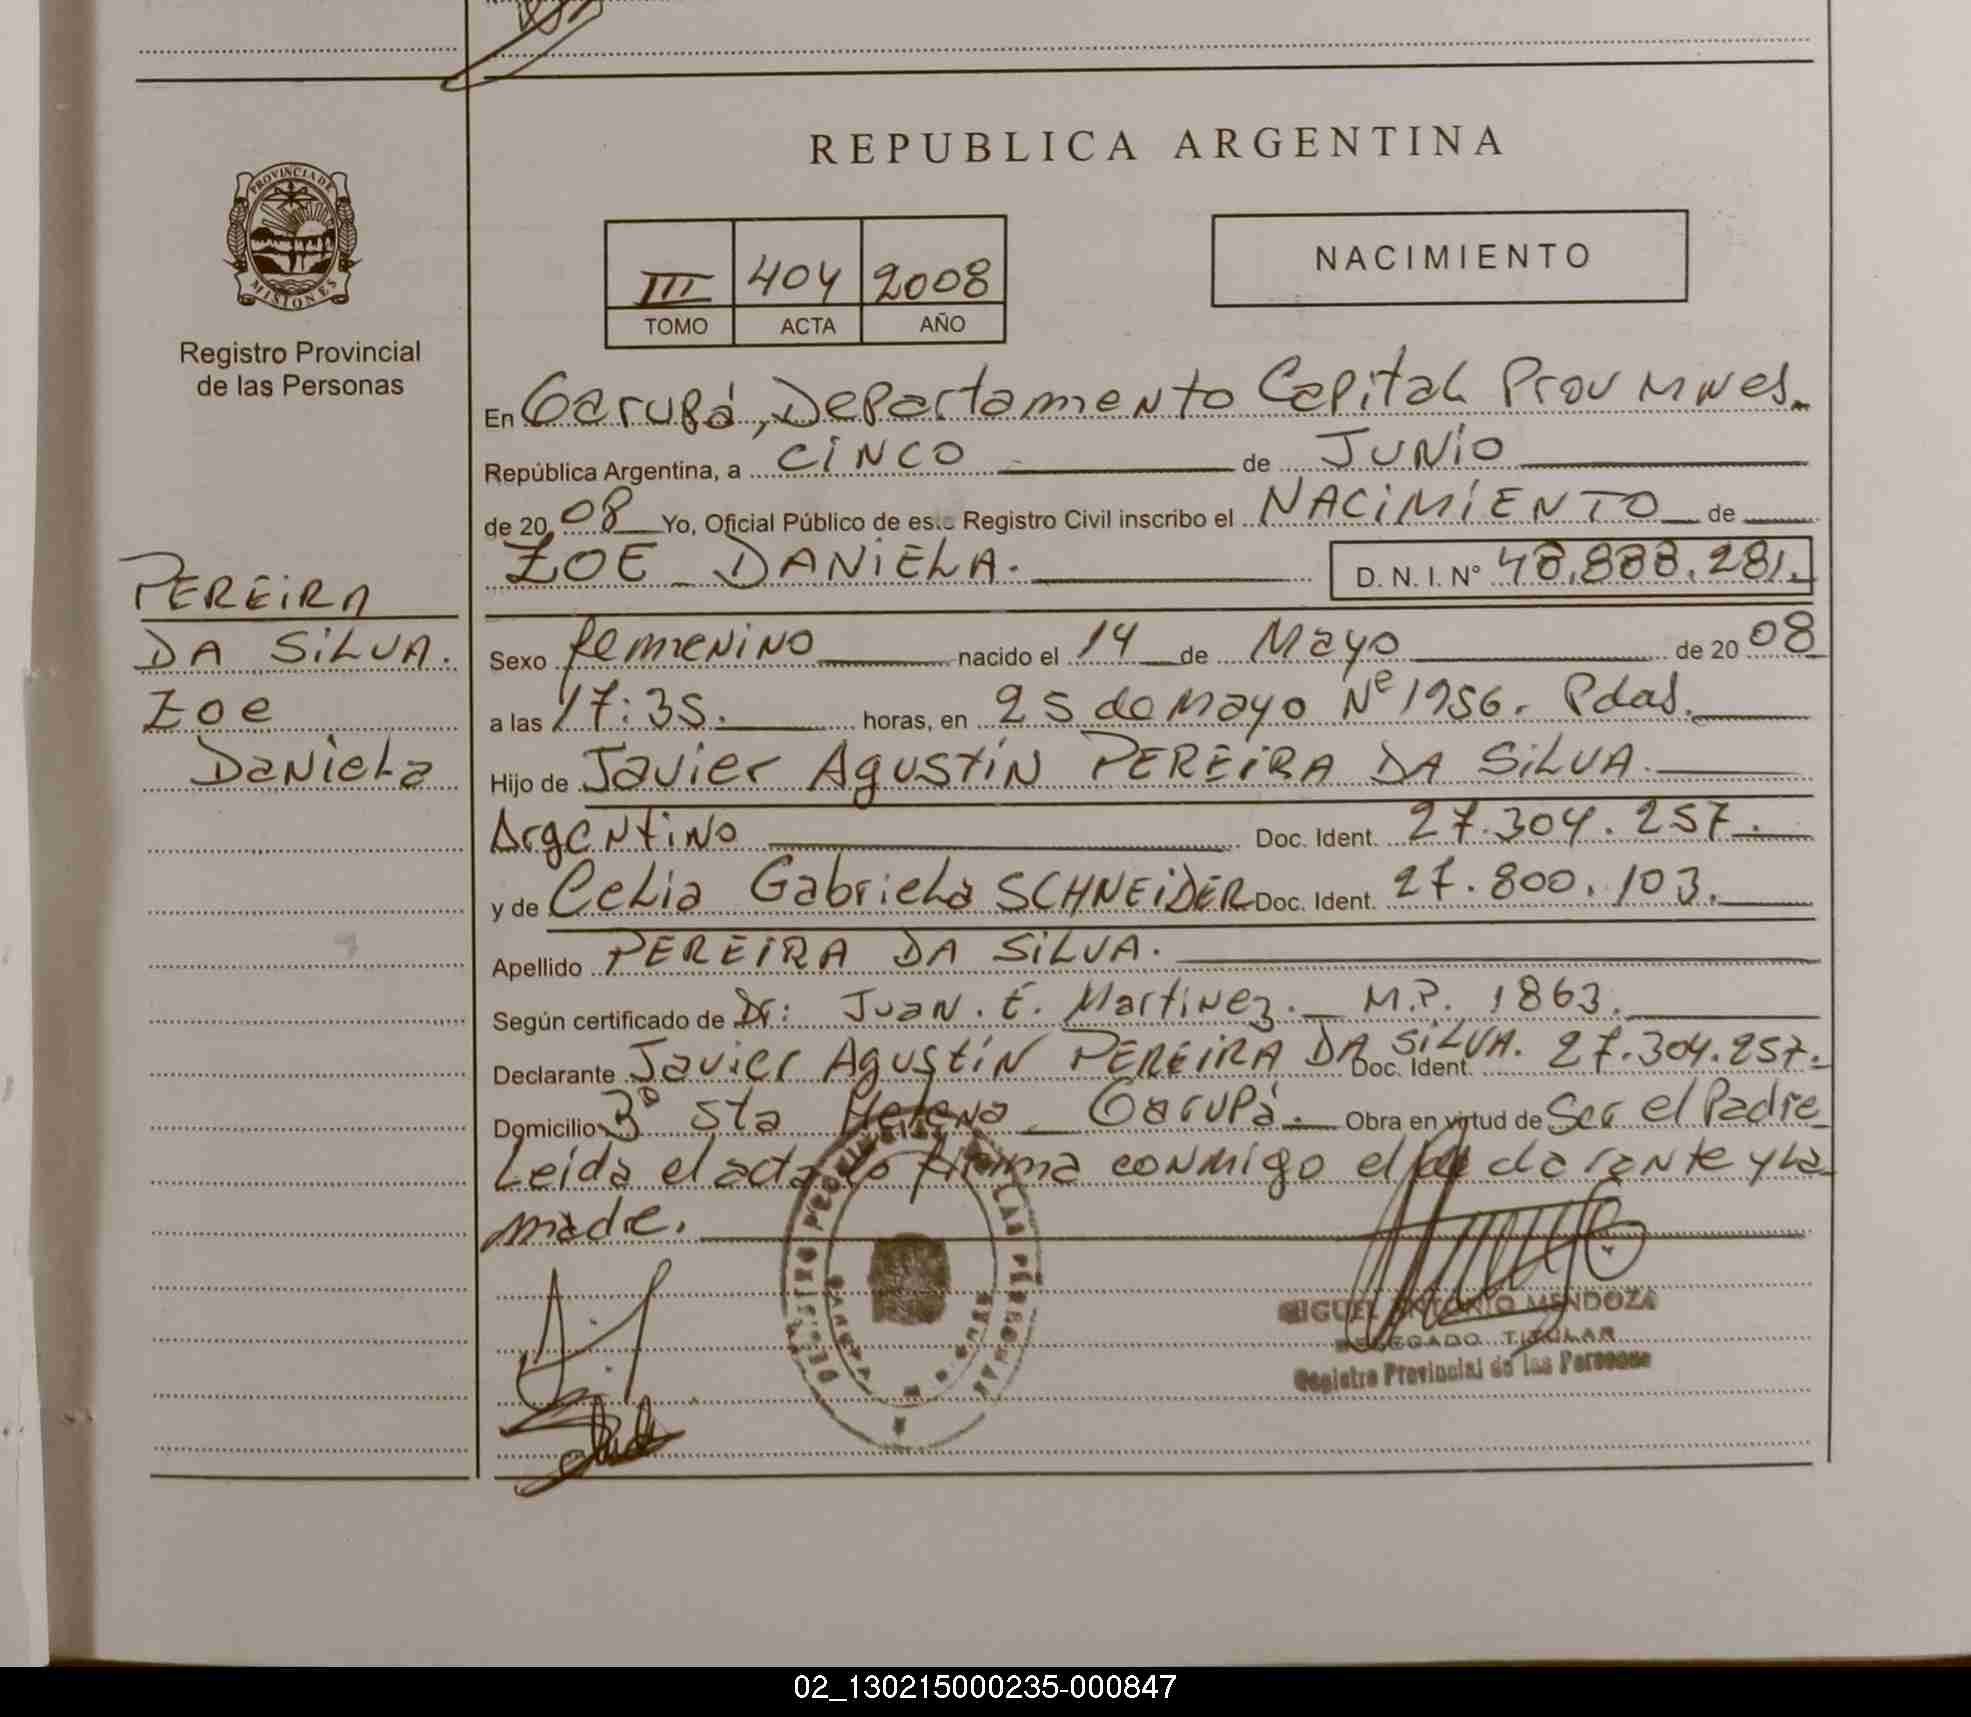 REPUBLICA ARGENTINA
PROVINCIA DE
MISIONES
Registro Provincial
de las Personas
III 404 2008
TOMO ACTA AÑO
NACIMIENTO
En Garupá, Departamento Capital Prov Mnes.
República Argentina, a CINCO de JUNIO
de 20 08 Yo, Oficial Público de este Registro Civil inscribo el NACIMIENTO de
ZOE DANIELA. D. N. I. Nº 48.888.281.
PEREIRA
DA SILVA.
Zoe
Daniela
Sexo femenino nacido el 14 de Mayo de 20 08
a las 17:35. horas, en 25 de Mayo Nº 1956. Pdas.
Hijo de Javier Agustín PEREIRA DA SILVA.
Argentino Doc. Ident. 27.304.257.
y de Celia Gabriela SCHNEIDER Doc. Ident. 27.800.103.
Apellido PEREIRA DA SILVA.
Según certificado de Dr: Juan. E. Martinez. M.P. 1863.
Declarante Javier Agustín PEREIRA DA SILVA. Doc. Ident. 27.304.257.
Domicilio Bº Sta Helena Garupá. Obra en virtud de Ser el Padre
Leída el acta lo firma conmigo el declarante y la
madre.
MIGUEL ANTONIO MENDOZA
DELEGADO TITULAR
Registro Provincial de las Personas
02_130215000235-000847